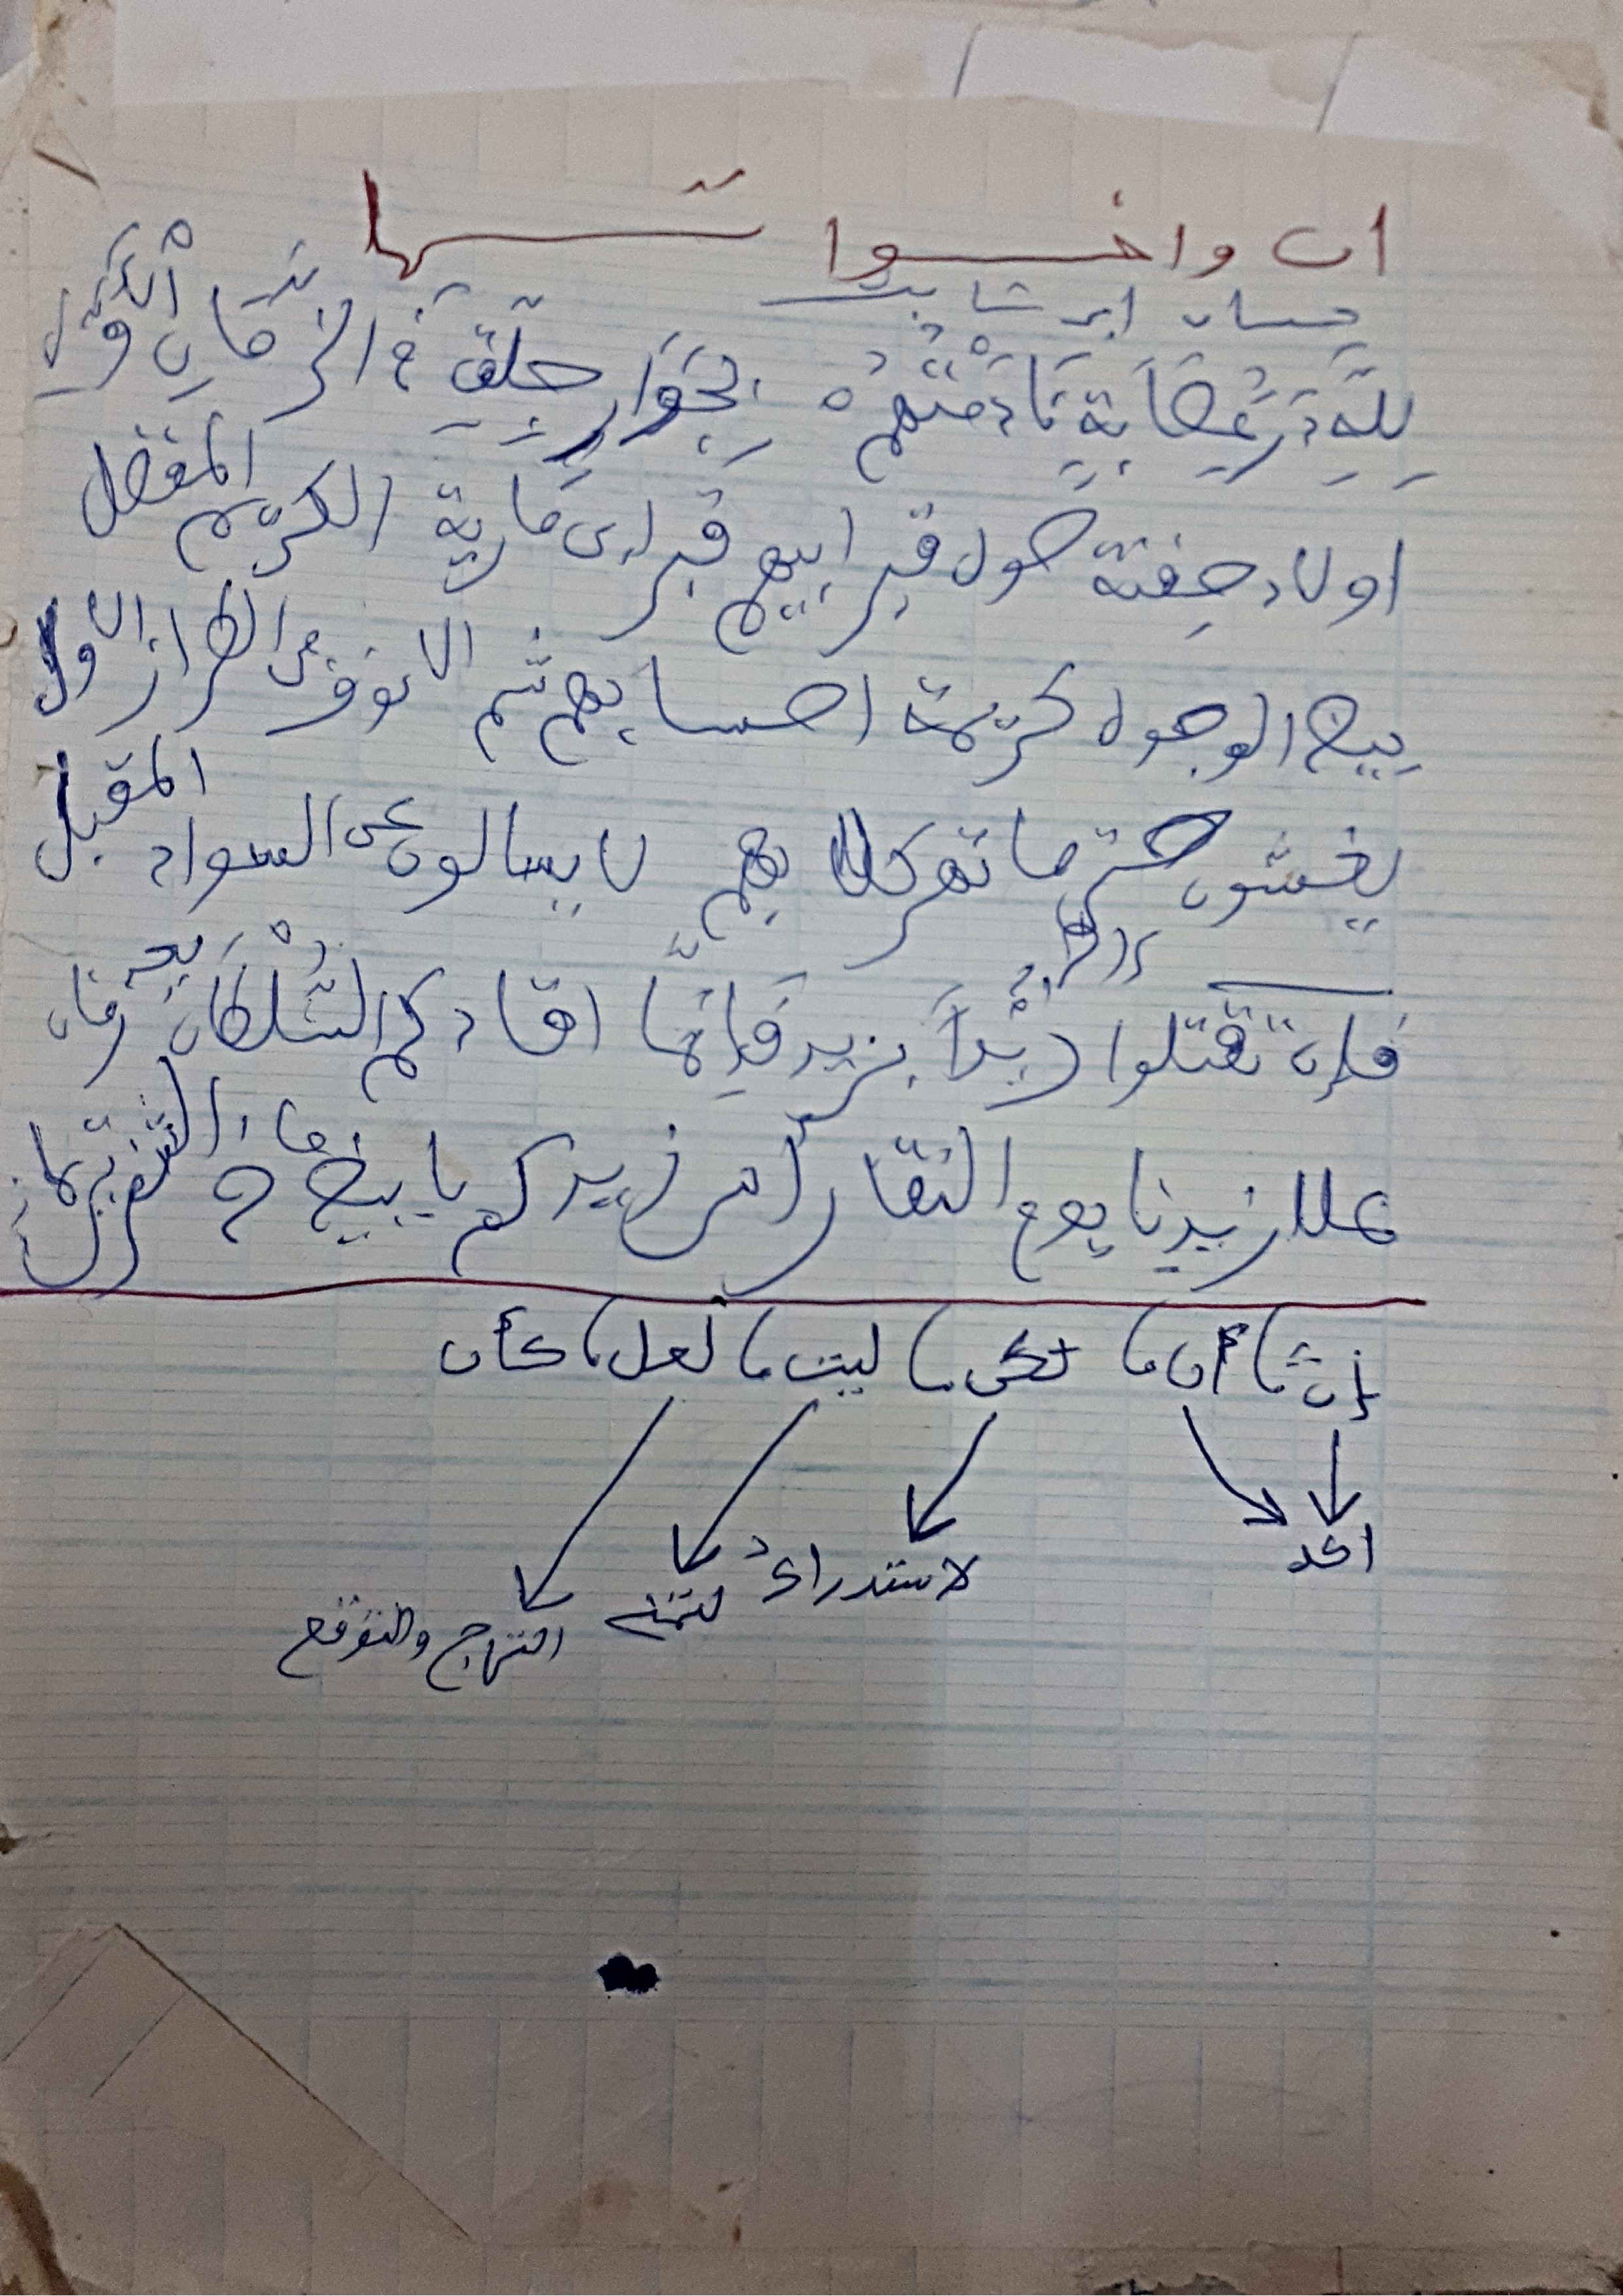 ان واخواتها
حسان ابن ثابت
لِلَّهِ دَرُّ عِصَابَةٍ نَادَمْتُهُمْ بِجِوَارِ جِلَّقَ في الزَّمَانِ الْأَوَّلِ
اولاد جفنة حول قبر ابيهم قبر ابن مارية الكريم المفضل
بيض الوجوه كريمة احسابهم شم الانوف من الطراز الاول
يغشون حتى ما تهر كلابهم لا يسالون عن السواد المقبل
فإن تقتلوا زيداً بزيد فَإِنَّمَا اقادكم السُّلْطَانُ بعد زمان
علا زيدنا يوم النقا راس زيدكم بابيض من ماء
إن، أن، لكن، ليت، لعل، كأن
اكد
لاستدراك
لتمني
الترجي والتوقع